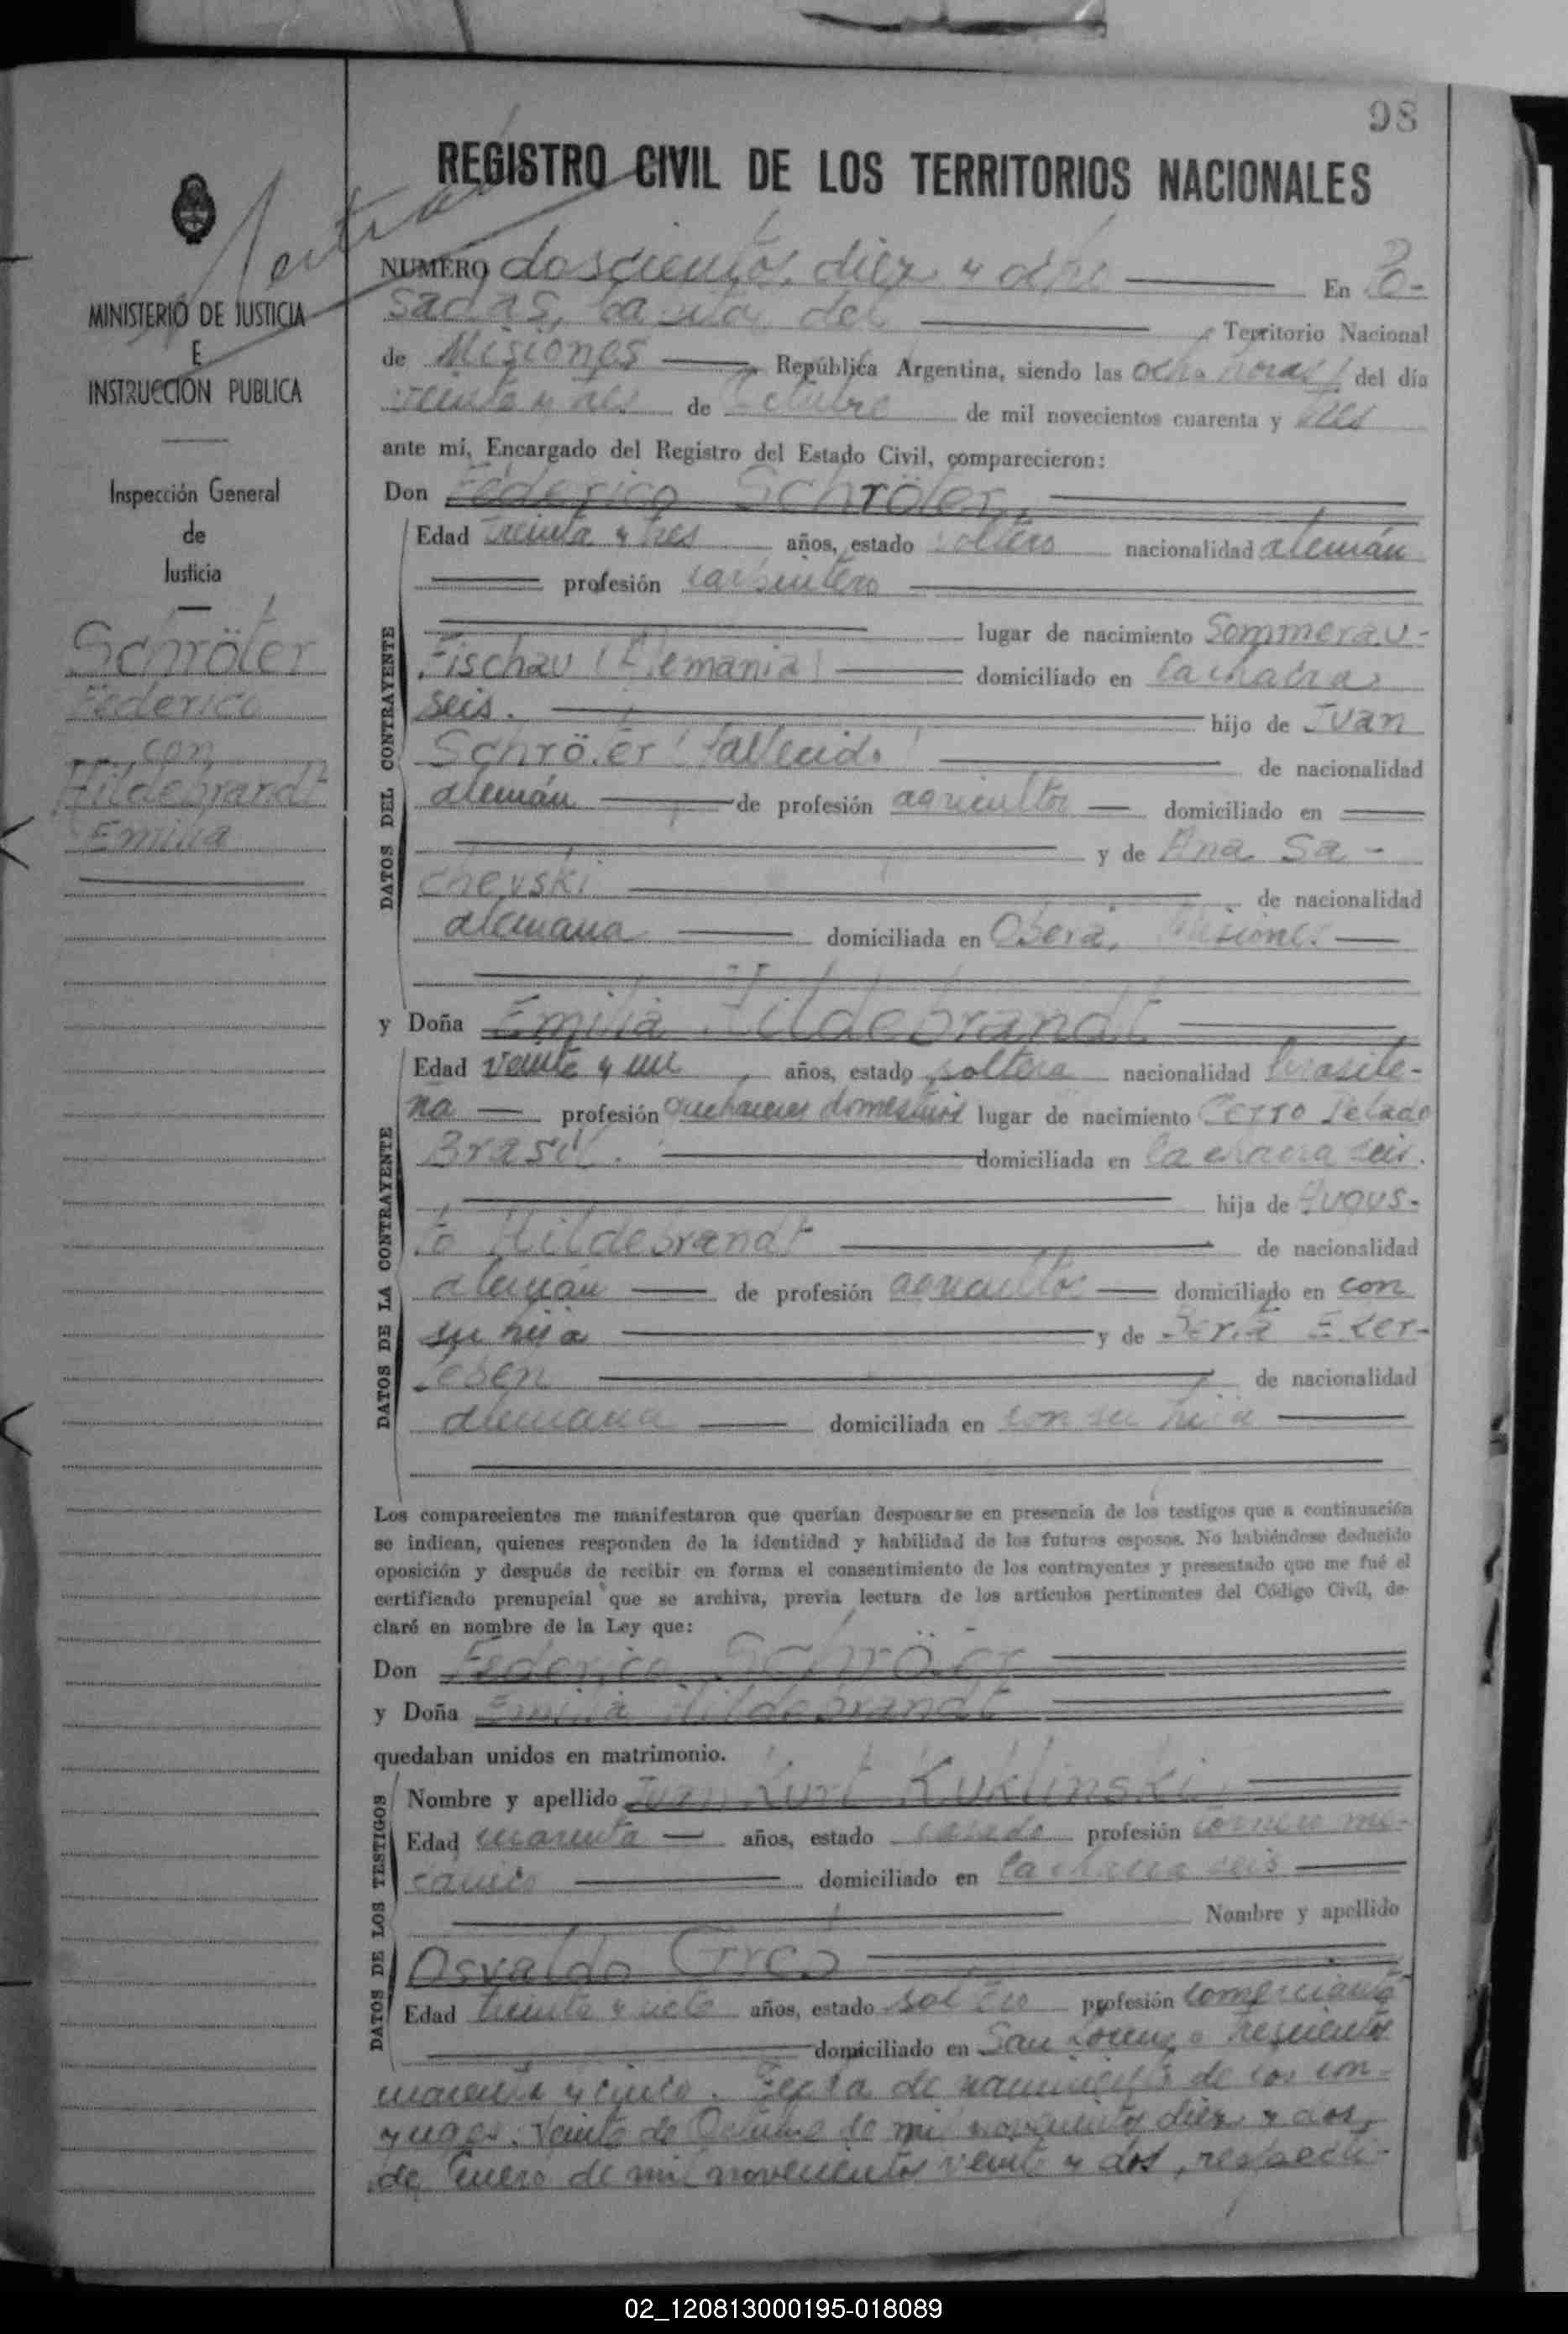 98
REGISTRO CIVIL DE LOS TERRITORIOS NACIONALES
MINISTERIO DE JUSTICIA
E
INSTRUCCIÓN PUBLICA
Inspección General
de
Justicia
Schröter
Federico
con
Hildebrandt
Emilia
NUMERO doscientos diez y ocho En Po-
sadas, capital del Territorio Nacional
de Misiones República Argentina, siendo las ocho horas del día
veinte y tres de Octubre de mil novecientos cuarenta y tres
ante mí, Encargado del Registro del Estado Civil, comparecieron:
Don Federico Schröter
DATOS DEL CONTRAYENTE
Edad treinta y tres años, estado soltero nacionalidad alemán
profesión carpintero
lugar de nacimiento Sommerau-
Fischau (Alemania) domiciliado en la chacra
seis. hijo de Juan
Schröter (fallecido) de nacionalidad
alemán de profesión agricultor domiciliado en
y de Ana Sa-
chevski de nacionalidad
alemana domiciliada en Oberá, Misiones
y Doña Emilia Hildebrandt
DATOS DE LA CONTRAYENTE
Edad veinte y un años, estado soltera nacionalidad brasile-
ña profesión quehaceres domésticos lugar de nacimiento Cerro Pelado
Brasil. domiciliada en la chacra seis.
hija de Augus-
to Hildebrandt de nacionalidad
alemán de profesión agricultor domiciliado en con
su hija y de Berta
de nacionalidad
alemana domiciliada en con su hija
Los comparecientes me manifestaron que querían desposarse en presencia de los testigos que a continuación
se indican, quienes responden de la identidad y habilidad de los futuros esposos. No habiéndose deducido
oposición y después de recibir en forma el consentimiento de los contrayentes y presentado que me fué el
certificado prenupcial que se archiva, previa lectura de los artículos pertinentes del Código Civil, de-
claré en nombre de la Ley que:
Don Federico Schröter
y Doña Emilia Hildebrandt
quedaban unidos en matrimonio.
DATOS DE LOS TESTIGOS
Nombre y apellido Juan Kurt Kuklinski
Edad cuarenta años, estado casado profesión tornero me-
cánico domiciliado en la chacra seis
Nombre y apellido
Osvaldo
Edad treinta y siete años, estado soltero profesión comerciante
domiciliado en San Lorenzo trescientos
cuarenta y cinco. Fecha de nacimiento de los con-
yuges. Veinte de Octubre de mil novecientos diez y dos
de Enero de mil novecientos veinte y dos, respecti-
02_120813000195-018089